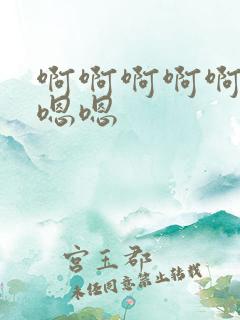 啊啊啊啊啊
嗯嗯
宫玉郡
未经同意禁止转载